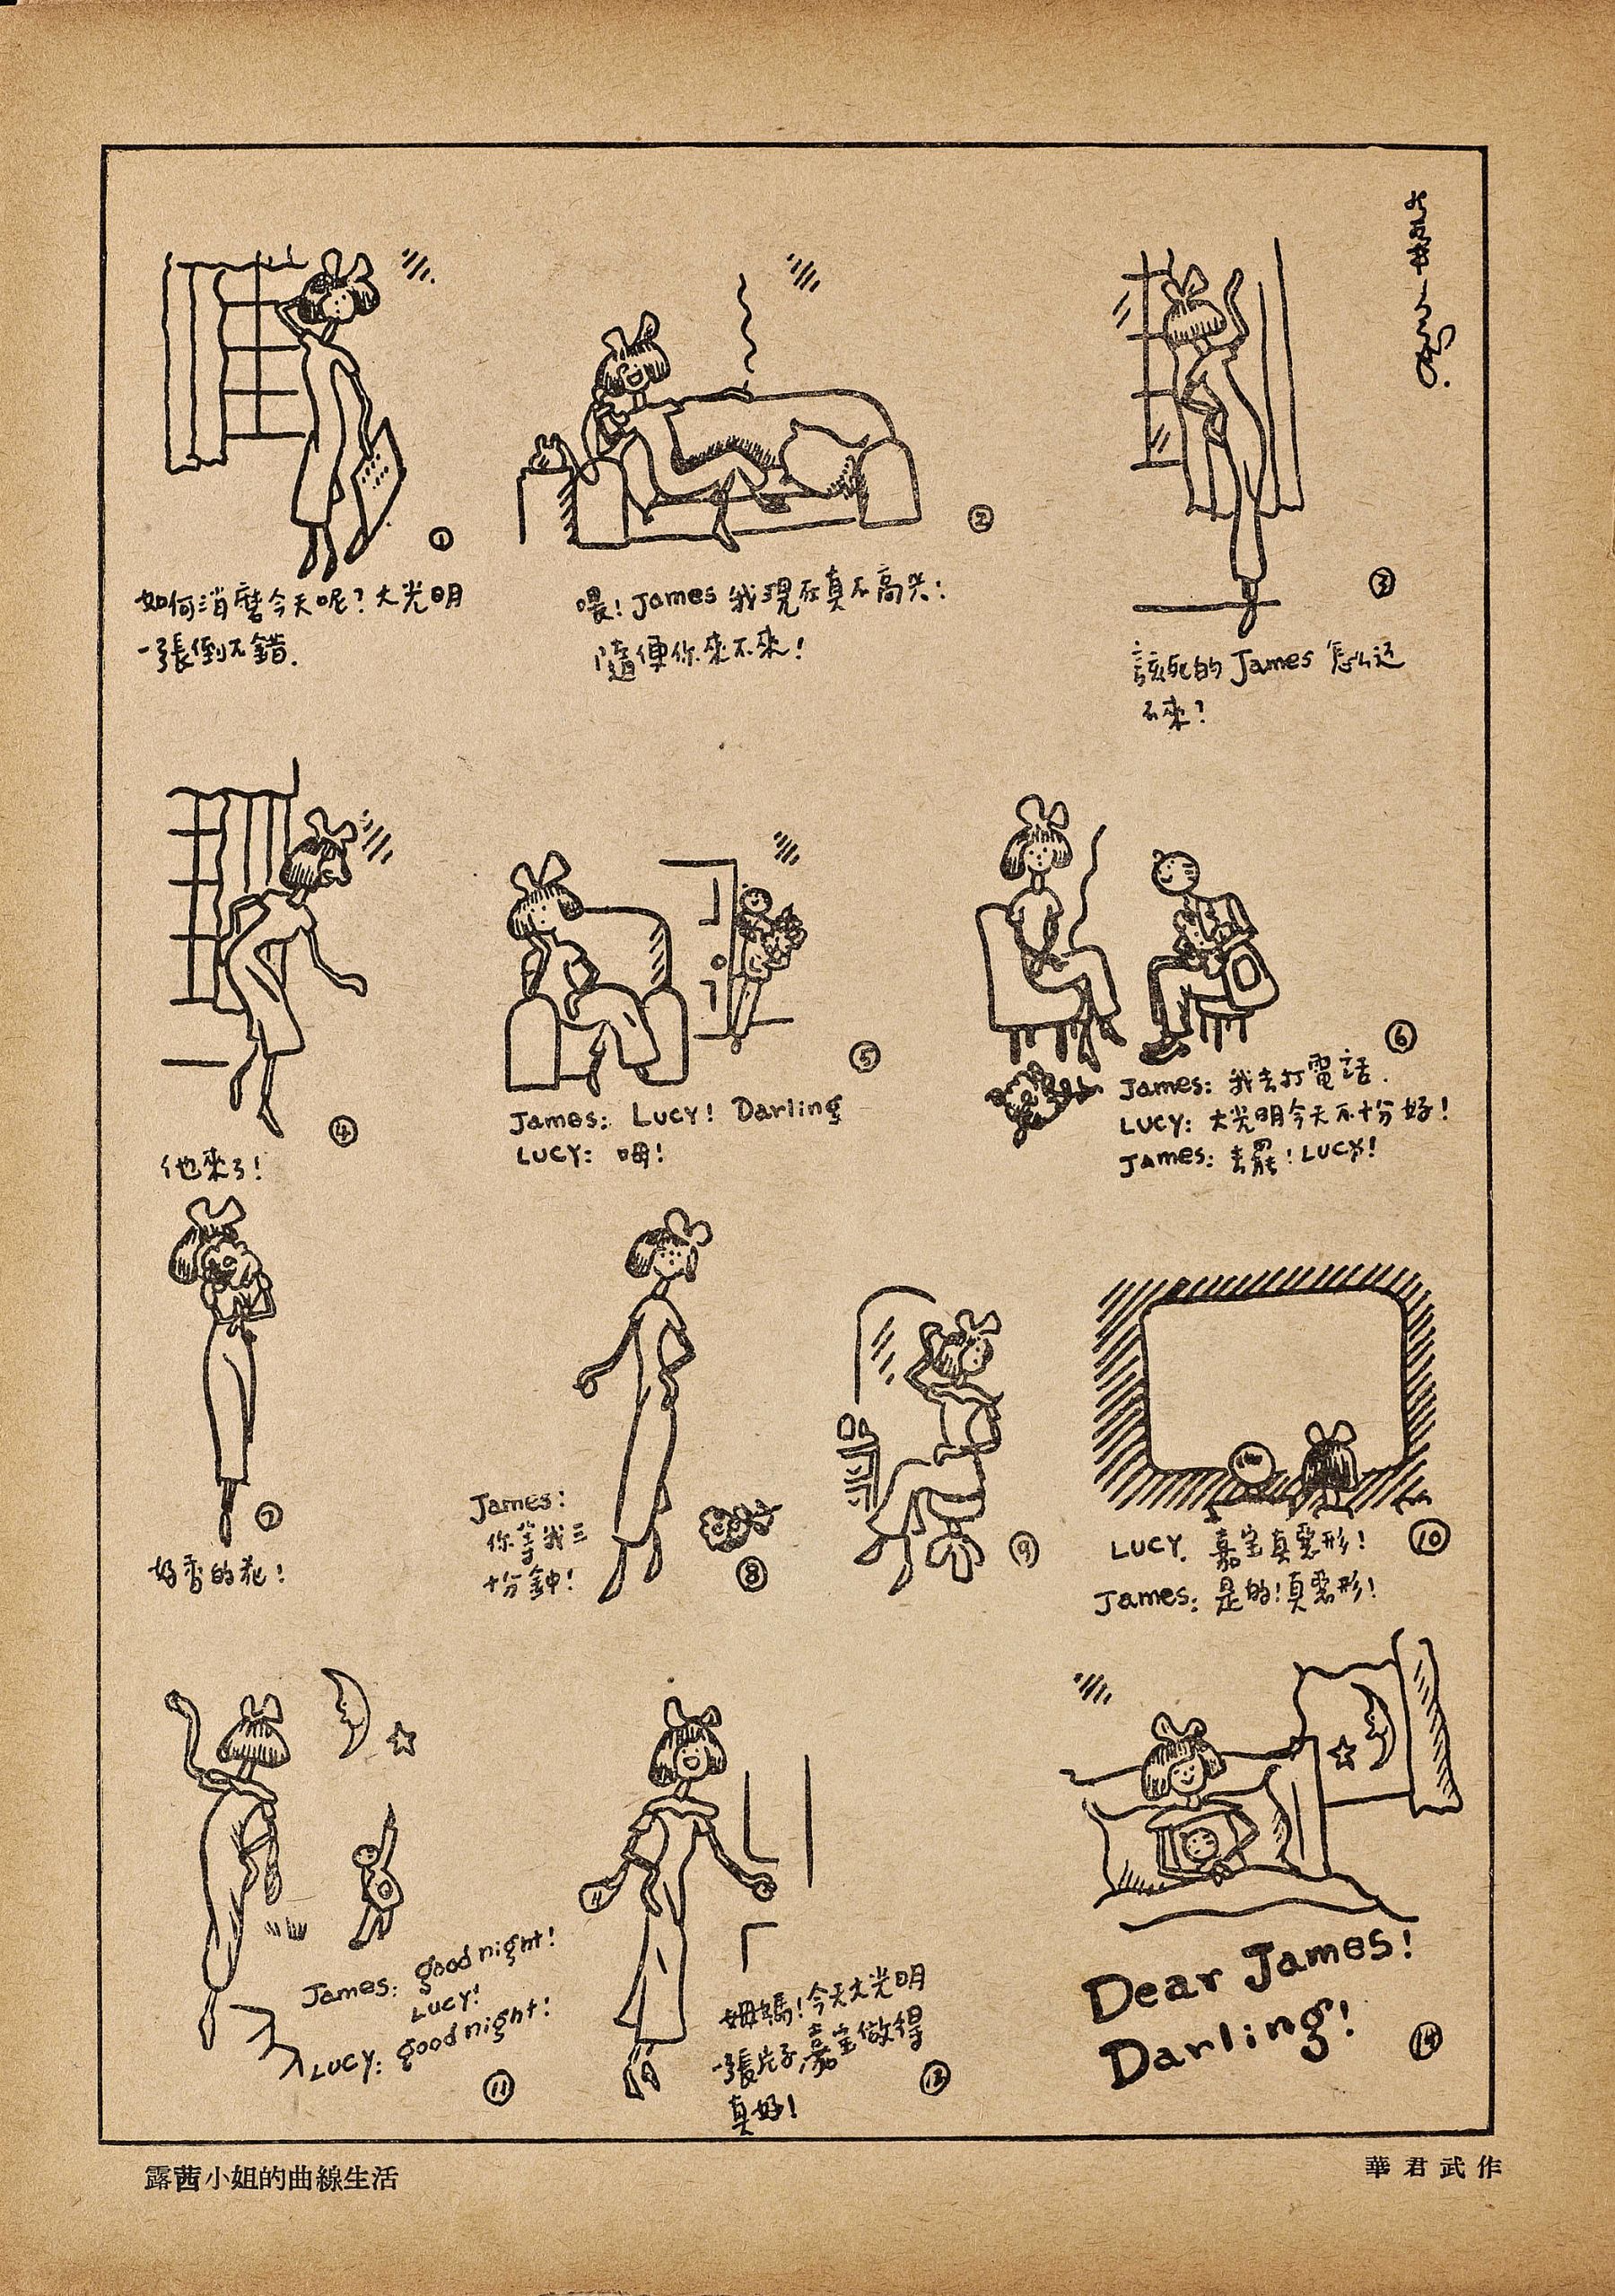 ①
如何消磨今天呢？大光明
一張倒不錯．
②
喂！James 我現在真不高兴！
隨便你來不來！
③
該死的 James 怎么还
不來？
④
他來了！
⑤
James: LUCY! Darling
LUCY: 唔!
⑥
James: 我去打電話．
LUCY: 大光明今天不十分好！
James: 去罷！LUCY!
⑦
好香的花！
James:
你等我三
十分鐘！
⑧
⑨
⑩
LUCY. 嘉宝真惡形！
James: 是的！真惡形！
James: good night!
LUCY!
LUCY: good night!
⑪
姆媽！今天大光明
一張片子，嘉宝做得
真好！
⑬
Dear James!
Darling!
⑭
露茜小姐的曲線生活
華君武作